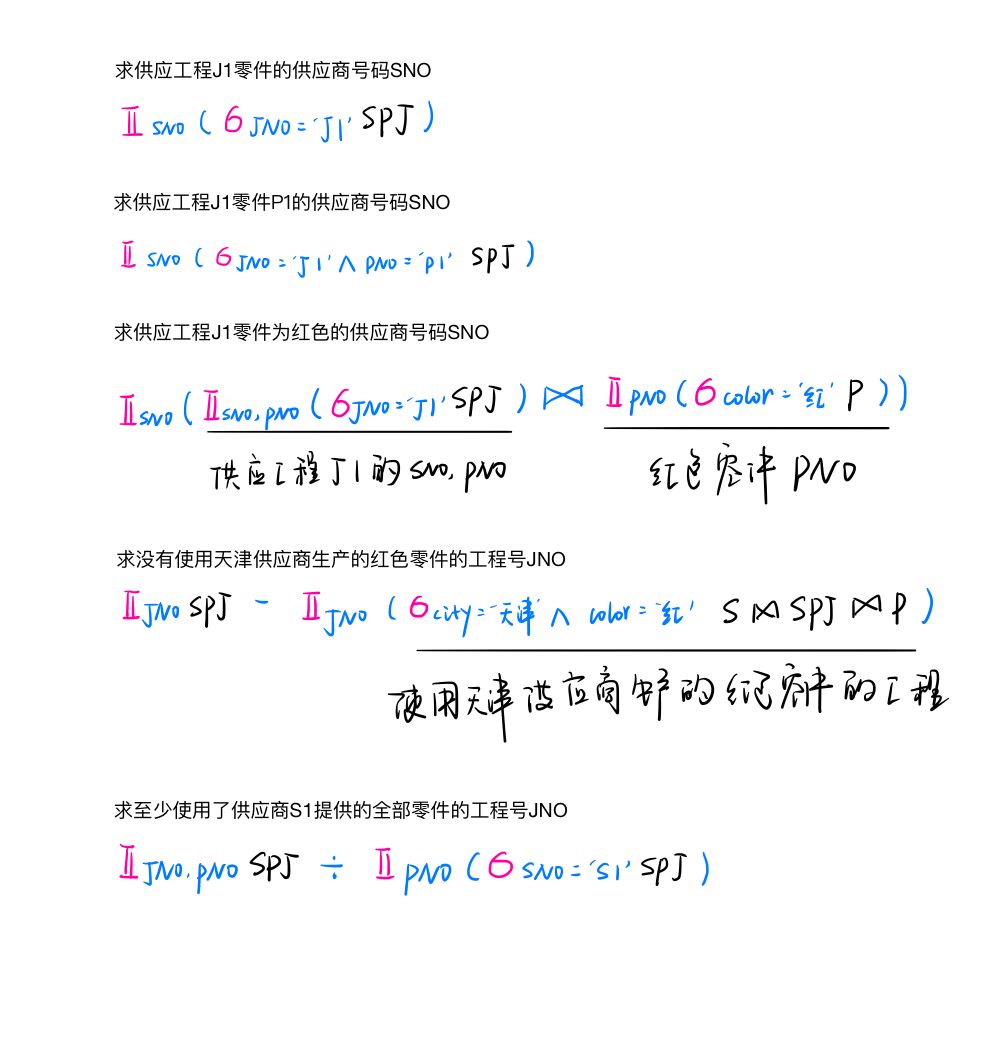 求供应工程J1零件的供应商号码SNO
Π SNO ( σ JNO = 'J1' SPJ )
求供应工程J1零件P1的供应商号码SNO
Π SNO ( σ JNO = 'J1' ∧ PNO = 'P1' SPJ )
求供应工程J1零件为红色的供应商号码SNO
Π SNO ( Π SNO, PNO ( σ JNO = 'J1' SPJ ) ⋈ Π PNO ( σ color = '红' P ) )
供应工程J1的SNO, PNO 红色零件PNO
求没有使用天津供应商生产的红色零件的工程号JNO
Π JNO SPJ - Π JNO ( σ city = '天津' ∧ color = '红' S ⋈ SPJ ⋈ P )
使用天津供应商生产的红色零件的工程
求至少使用了供应商S1提供的全部零件的工程号JNO
Π JNO, PNO SPJ ÷ Π PNO ( σ SNO = 'S1' SPJ )